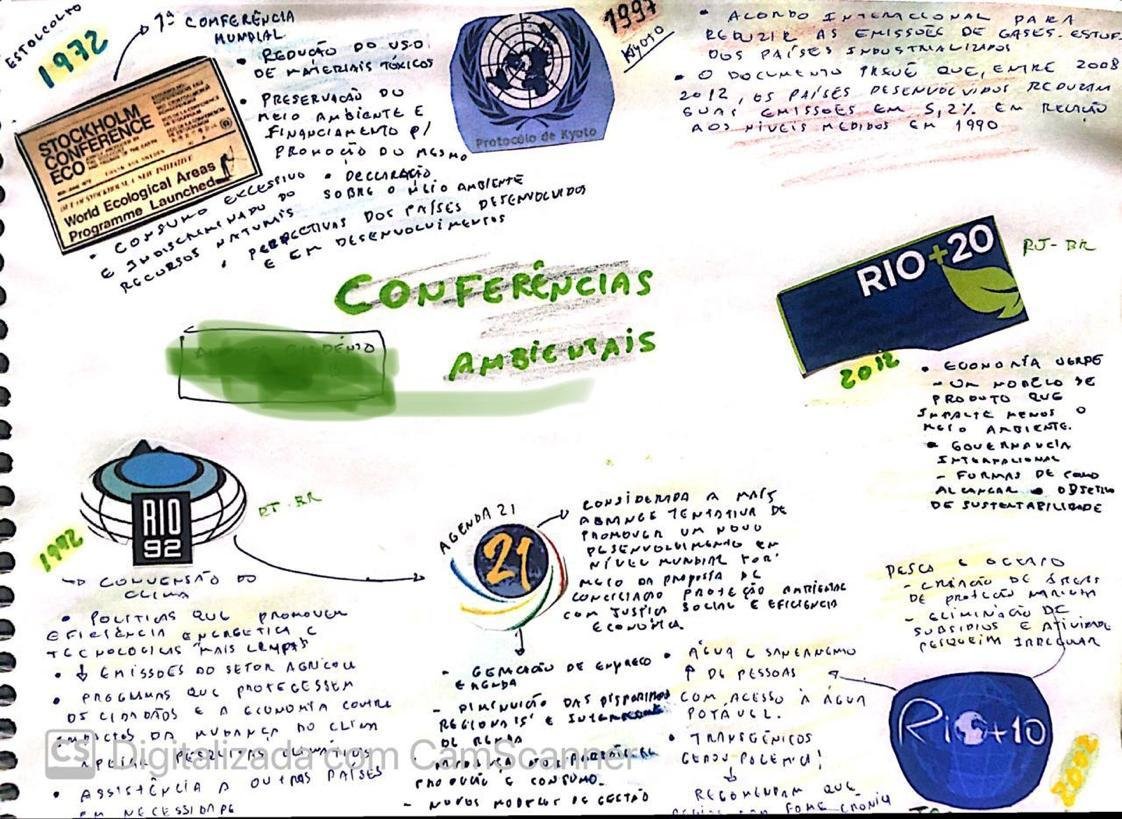 ESTOCOLMO
1972
1ª CONFERÊNCIA
MUNDIAL
STOCKHOLM
CONFERENCE
ECO
World Ecological Areas
Programme Launched
• REDUÇÃO DO USO
DE MATERIAIS TÓXICOS
• PRESERVAÇÃO DO
MEIO AMBIENTE E
FINANCIAMENTO P/
PROMOÇÃO DO MESMO
• CONSUMO EXCESSIVO
E INDISCRIMINADO DO
RECURSOS NATURAIS
• DECLARAÇÃO
SOBRE O MEIO AMBIENTE
• PERSPECTIVAS DOS PAÍSES DESENVOLVIDOS
E EM DESENVOLVIMENTOS
Protocolo de Kyoto
1997
Kyoto
• ACORDO INTERNACIONAL PARA
REDUZIR AS EMISSÕES DE GASES-ESTUF.
DOS PAÍSES INDUSTRIALIZADOS
• O DOCUMENTO PREVÊ QUE, ENTRE 2008
2012, OS PAÍSES DESENVOLVIDOS REDUZAM
SUAS EMISSÕES EM 5,2% EM RELAÇÃO
AOS NÍVEIS MEDIDOS EM 1990
CONFERÊNCIAS
AMBIENTAIS
RIO+20
RJ-BR
2012
• ECONOMIA VERDE
- UM MODELO DE
PRODUTO QUE
IMPACTE MENOS O
MEIO AMBIENTE.
• GOVERNANCIA
INTERNACIONAL
- FORMAS DE COMO
ALCANÇAR O OBJETIVO
DE SUSTENTABILIDADE
RIO
92
RJ-BR
1992
→ CONVENSÃO DO
CLIMA
• POLÍTICAS QUE PROMOVEM
EFICIÊNCIA ENERGÉTICA E
TECNOLOGIAS MAIS LIMPAS
• ↓ EMISSÕES DO SETOR AGRÍCOLA
• PROGRAMAS QUE PROTEGESSEM
OS CIDADÃOS E A ECONOMIA CONTRA
IMPACTOS DA MUDANÇA DO CLIMA
• ASSISTÊNCIA A OUTROS PAÍSES
EM NECESSIDADE
AGENDA 21
21
CONSIDERADA A MAIS
ABRANGE TENTATIVA DE
PROMOVER UM NOVO
DESENVOLVIMENTO EM
NÍVEL MUNDIAL POR
MEIO DA PROPOSTA DE
CONCILIAÇÃO PROTEÇÃO AMBIENTAL
COM JUSTIÇA SOCIAL E EFICIÊNCIA
ECONÔMICA.
- GERAÇÃO DE EMPREGO
E RENDA
- DIMINUIÇÃO DAS DISPARIDADES
REGIONAIS E
DE RENDA
PRODUÇÃO E CONSUMO.
- NOVOS MODELOS DE GESTÃO
PESCA E OCEANO
- CRIAÇÃO DE ÁREAS
DE PROTEÇÃO MARINHA
- ELIMINAÇÃO DE
SUBSÍDIOS E ATIVIDADE
PESQUEIRA IRREGULAR
• ÁGUA E SANEAMENTO
↑ DE PESSOAS
COM ACESSO À ÁGUA
POTÁVEL.
• TRANSGÊNICOS
GEROU POLÊMICA!
RECOMENDAM QUE
FOME CRÔNICA
Rio+10
2002
CS Digitalizada com CamScanner